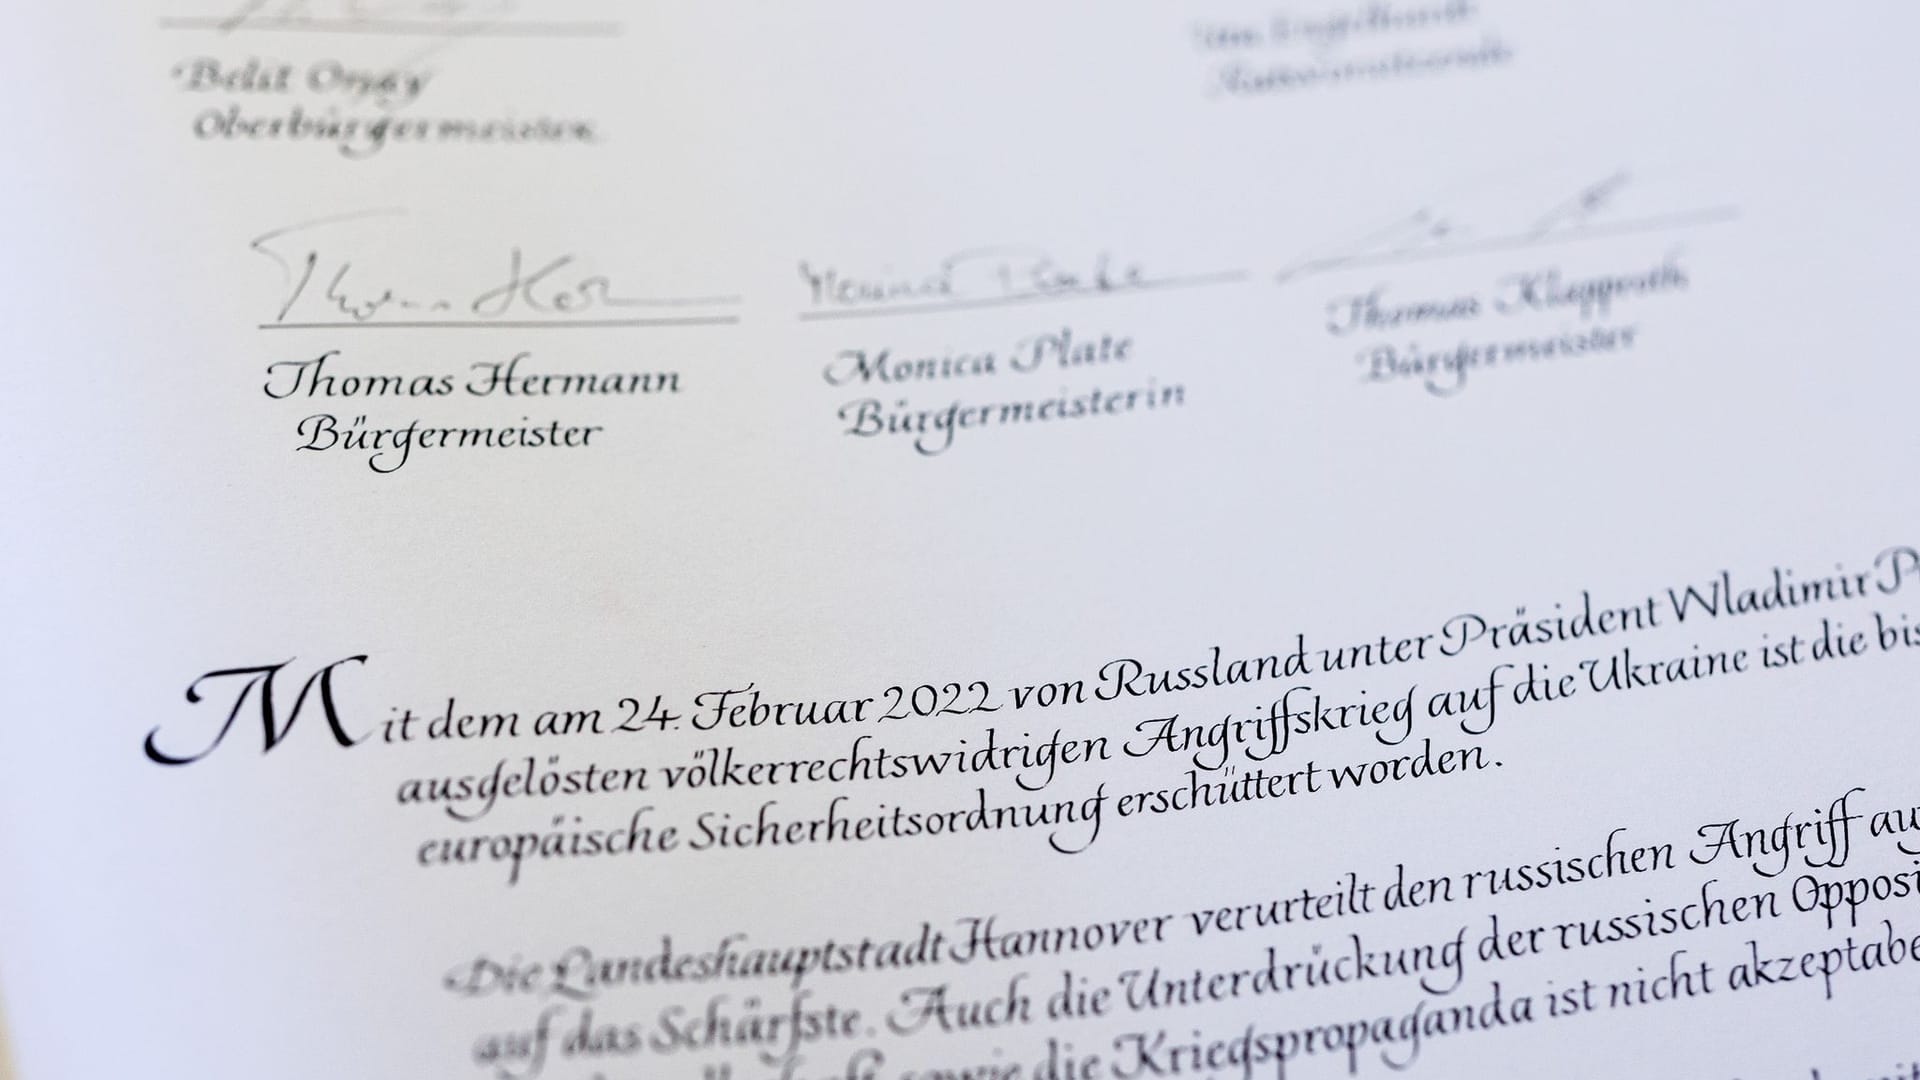 Belit Onay
Oberbürgermeister
Thomas Hermann
Bürgermeister
Monica Plate
Bürgermeisterin
Thomas Klapproth
Bürgermeister
Mit dem am 24. Februar 2022 von Russland unter Präsident Wladimir P
ausgelösten völkerrechtswidrigen Angriffskrieg auf die Ukraine ist die bis
europäische Sicherheitsordnung erschüttert worden.
Die Landeshauptstadt Hannover verurteilt den russischen Angriff au
auf das Schärfste. Auch die Unterdrückung der russischen Opposi
sowie die Kriegspropaganda ist nicht akzeptabe